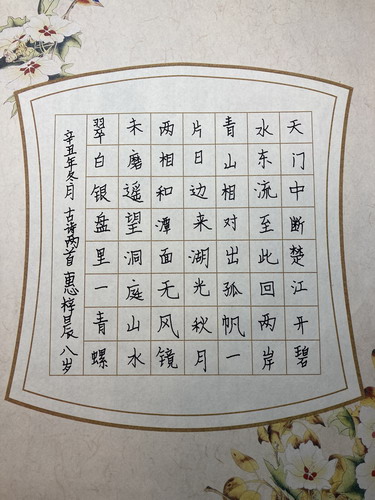 天门中断楚江开碧
水东流至此回两岸
青山相对出孤帆一
片日边来湖光秋月
两相和潭面无风镜
未磨遥望洞庭山水
翠白银盘里一青螺
辛丑年冬月 古诗两首 惠梓晨 八岁